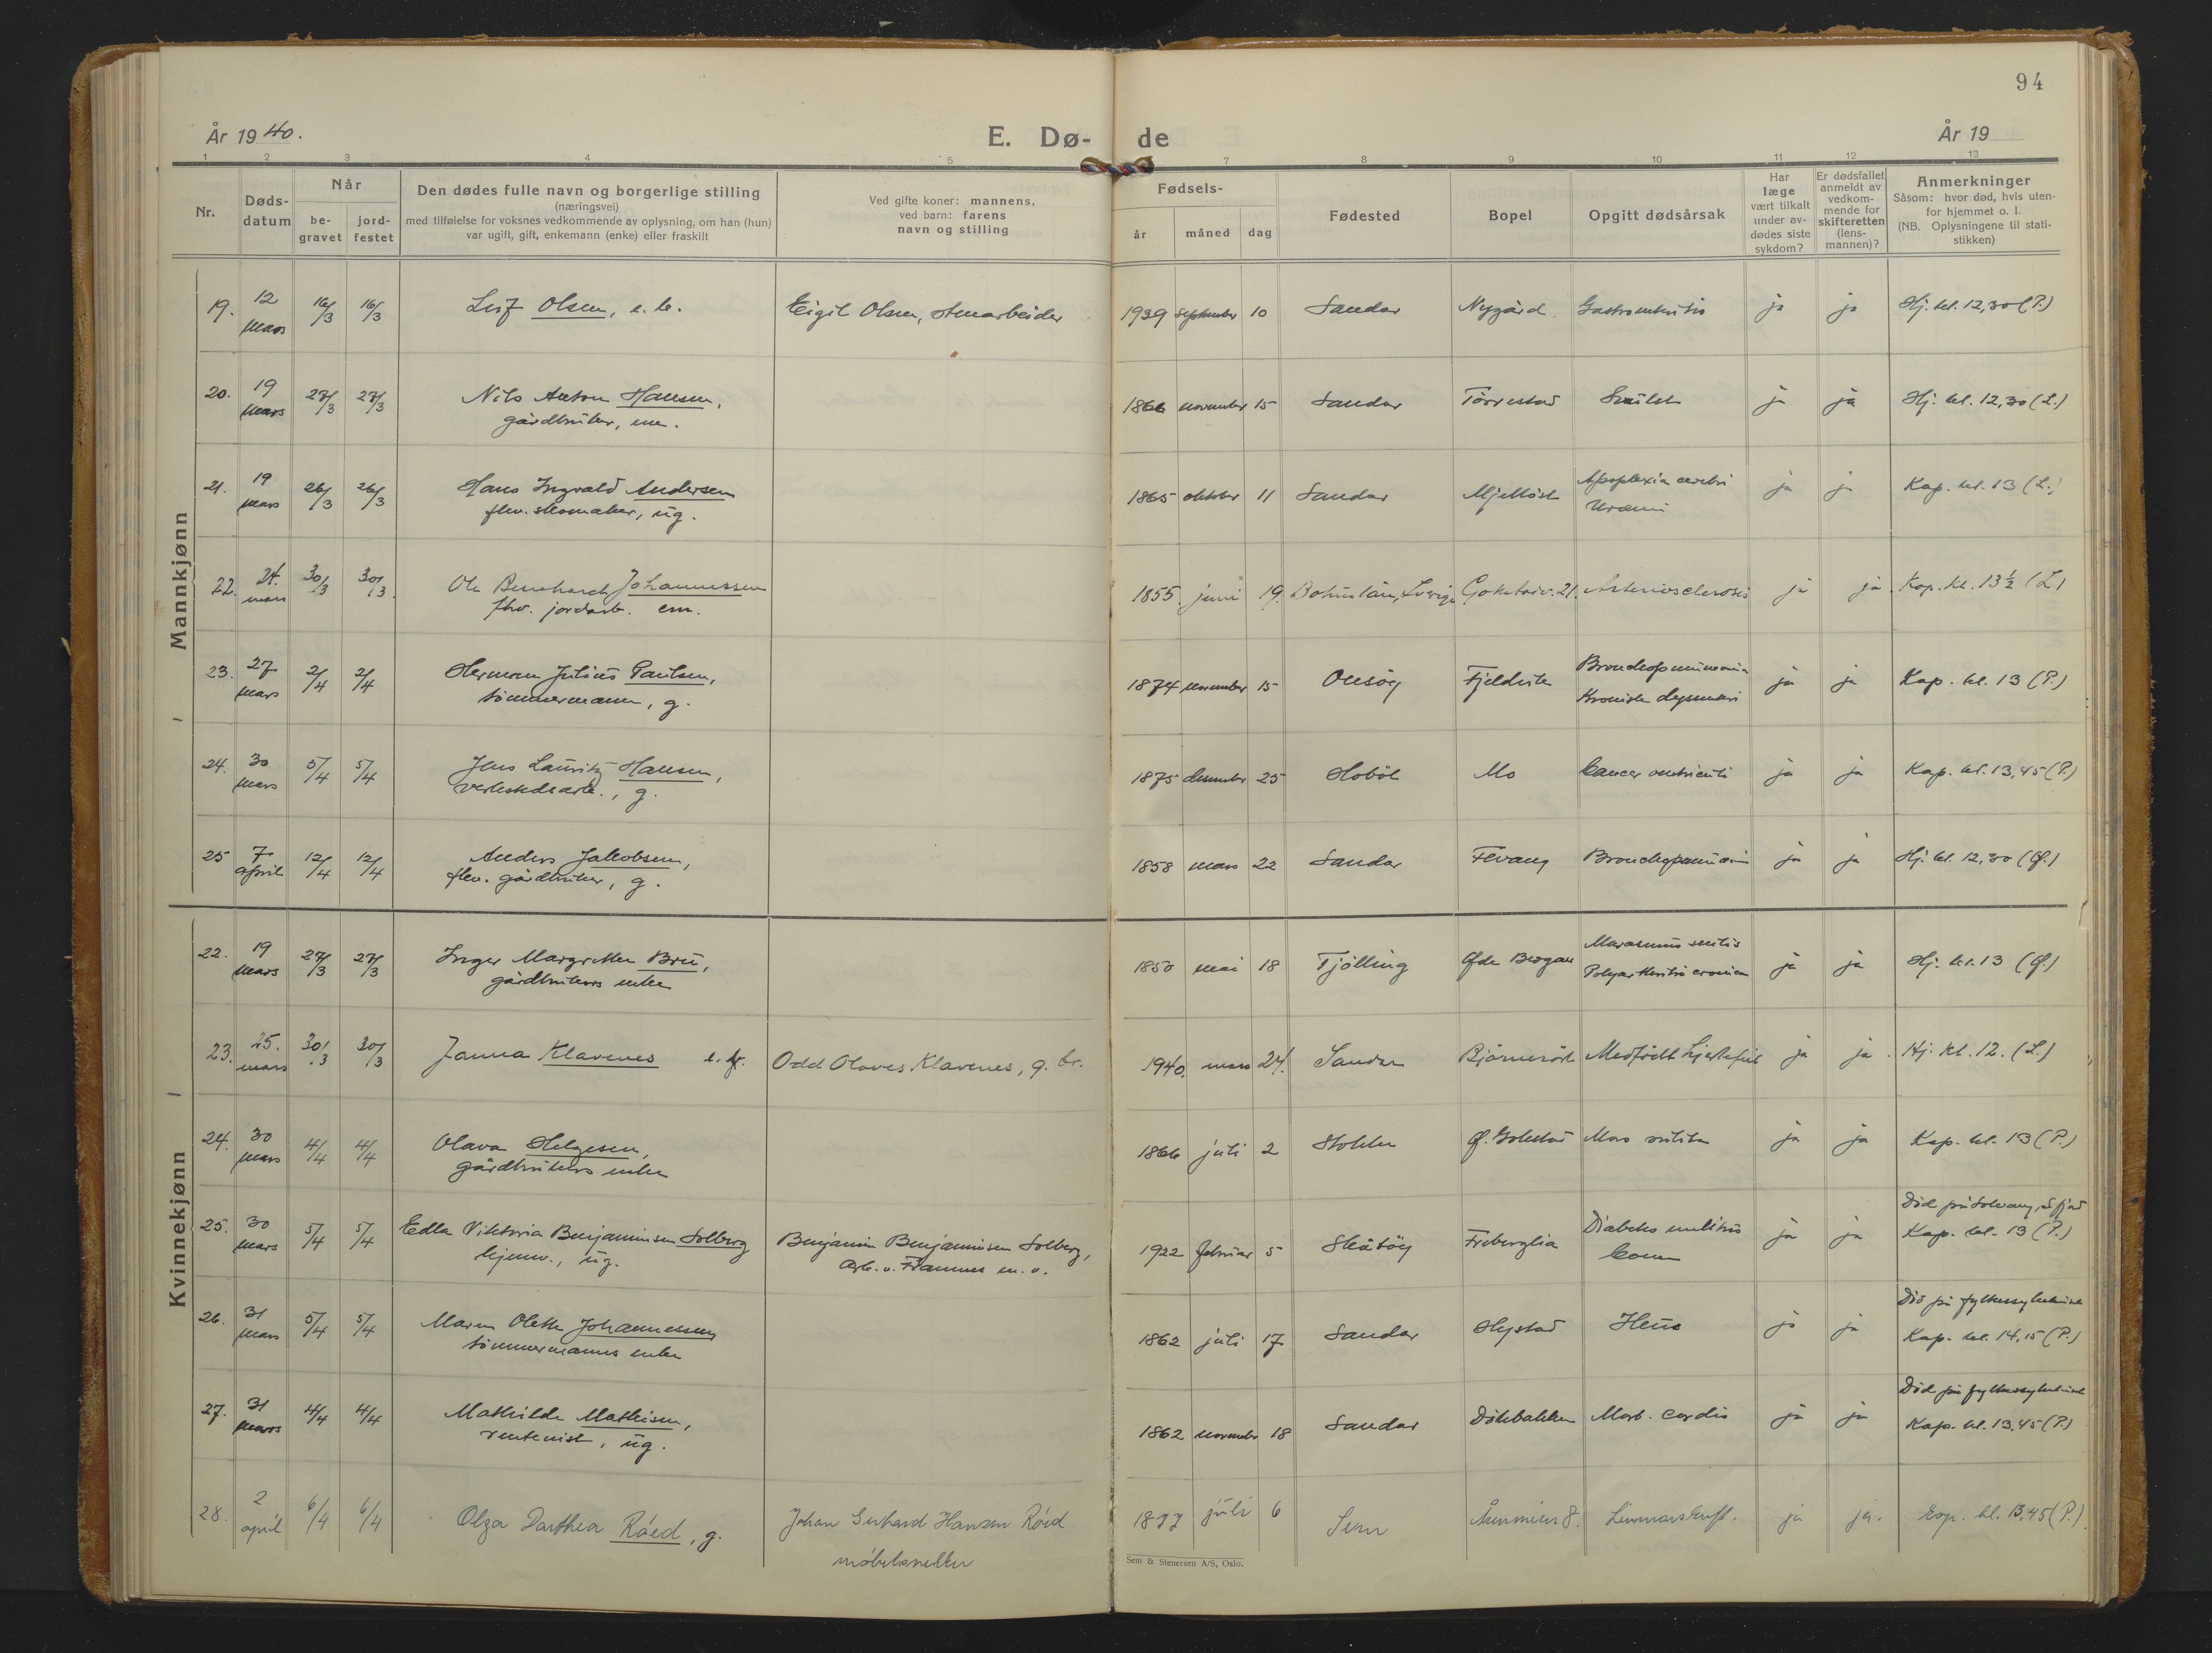 94
År 1940.
E. Dø-
de
År 19
1 2 3 4 5 7 8 9 10 11 12 13
Nr.
Døds-
datum
Når
be-
gravet
jord-
festet
Den dødes fulle navn og borgerlige stilling
(næringsvei)
med tilføielse for voksnes vedkommende av oplysning, om han (hun)
var ugift, gift, enkemann (enke) eller fraskilt
Ved gifte koner: mannens,
ved barn: farens
navn og stilling
Fødsels-
år
måned
dag
Fødested
Bopel
Opgitt dødsårsak
Har
læge
vært tilkalt
under av-
dødes siste
sykdom?
Er dødsfallet
anmeldt av
vedkom-
mende for
skifteretten
(lens-
mannen)?
Anmerkninger
Såsom: hvor død, hvis uten-
for hjemmet o. l.
(NB. Oplysningene til stati-
stikken)
Mannkjønn
19. 12 mars 16/3 16/3 Leif Olsen, e. b. Eigil Olsen, stenarbeider 1939 september 10 Sandar Nygård. Gastroenteritis ja ja Hj. kl. 12,30 (P.)
20. 19 mars 27/3 27/3 Nils Anton Hansen, 1866 november 15 Sandar Törrestad ja ja Hj. kl. 12,30 (L.)
gårdbruker, em.
21. 19 mars 26/3 26/3 Hans Ingvald Andersen 1865 oktober 11 Sandar Mjelløst Apoplexia cerebri ja ja Kap. kl. 13 (L.)
flv. skomaker, ug. Uræmi
22. 24. mars 30/3 30/3 Ole Bernhard Johannessen 1855. juni 19. Bohuslän, Sverige Gokstadv. 21. Arteriosclerosis ja ja. Kap. kl. 13½ (L)
fhv. jordarb. em.
23. 27 mars 2/4 2/4 Herman Julius Paulsen, 1874 november 15 Onsöy Fjeldvik Bronchopneumonia ja ja Kap. kl. 13 (P.)
tömmermann, g. Kronisk dysenteri
24. 30 mars 5/4 5/4 Jens Lauritz Hansen, 1875 desember 25 Hobøl Mo Cancer ventriculi ja ja Kap. kl. 13,45 (P.)
verkstedsarb., g.
25 7 april 12/4 12/4 Anders Jakobsen, 1858 mars 22 Sandar Fevang Bronchopneumoni ja ja Hj. kl. 12,30 (Ø.)
flv. gårdbruker, g.
Kvinnekjønn
22. 19 mars 27/3 27/3 Inger Margrethe Bru, 1850 mai 18 Tjölling Øde Bergan Marasmus senilis ja ja Hj. kl. 13 (Ø.)
gårdbrukers enke Polyarthritis cronica
23. 25. mars 30/3 30/3 Janna Klavenes e. f. Odd Olaves Klavenes, g. br. 1940. mars 24. Sandar Bjørnerød Medfödt hjertefeil ja ja. Hj. kl. 12. (L.)
24. 30 mars 4/4 4/4 Olava Helgesen, 1866 juli 2 Stokke Ø. Gokstad Mors senilis ja ja Kap. kl. 13 (P.)
gårdbrukers enke
Död på Solvang, S.fjord
25. 30 mars 5/4 5/4 Edla Viktoria Benjaminsen Solberg Benjamin Benjaminsen Solberg, 1922 februar 5 Skåtöy Friberglia Diabetes mellitus ja ja Kap. kl. 13 (P.)
hjemv., ug. Arb. v. Framnes m. v. Coma
Död på fylkessykehuset
26. 31 mars 5/4 5/4 Maren Olette Johannessen 1862 juli 17 Sandar Hystad Ileus ja ja Kap. kl. 14,15 (P.)
tömmermanns enke
Död på fylkessykehuset
27. 31 mars 4/4 4/4 Mathilde Mathisen, 1862 november 18 Sandar Dölebakken Morb. cordis ja ja Kap. kl. 13,45 (P.)
rentenist, ug.
28. 2 april 6/4 6/4 Olga Dorthea Röed, g. Johan Gerhard Hansen Röed 1877 juli 6 Sem ja ja. Kap. kl. 13,45 (P.)
møbelsnekker
Sem & Stenersen A/S, Oslo.